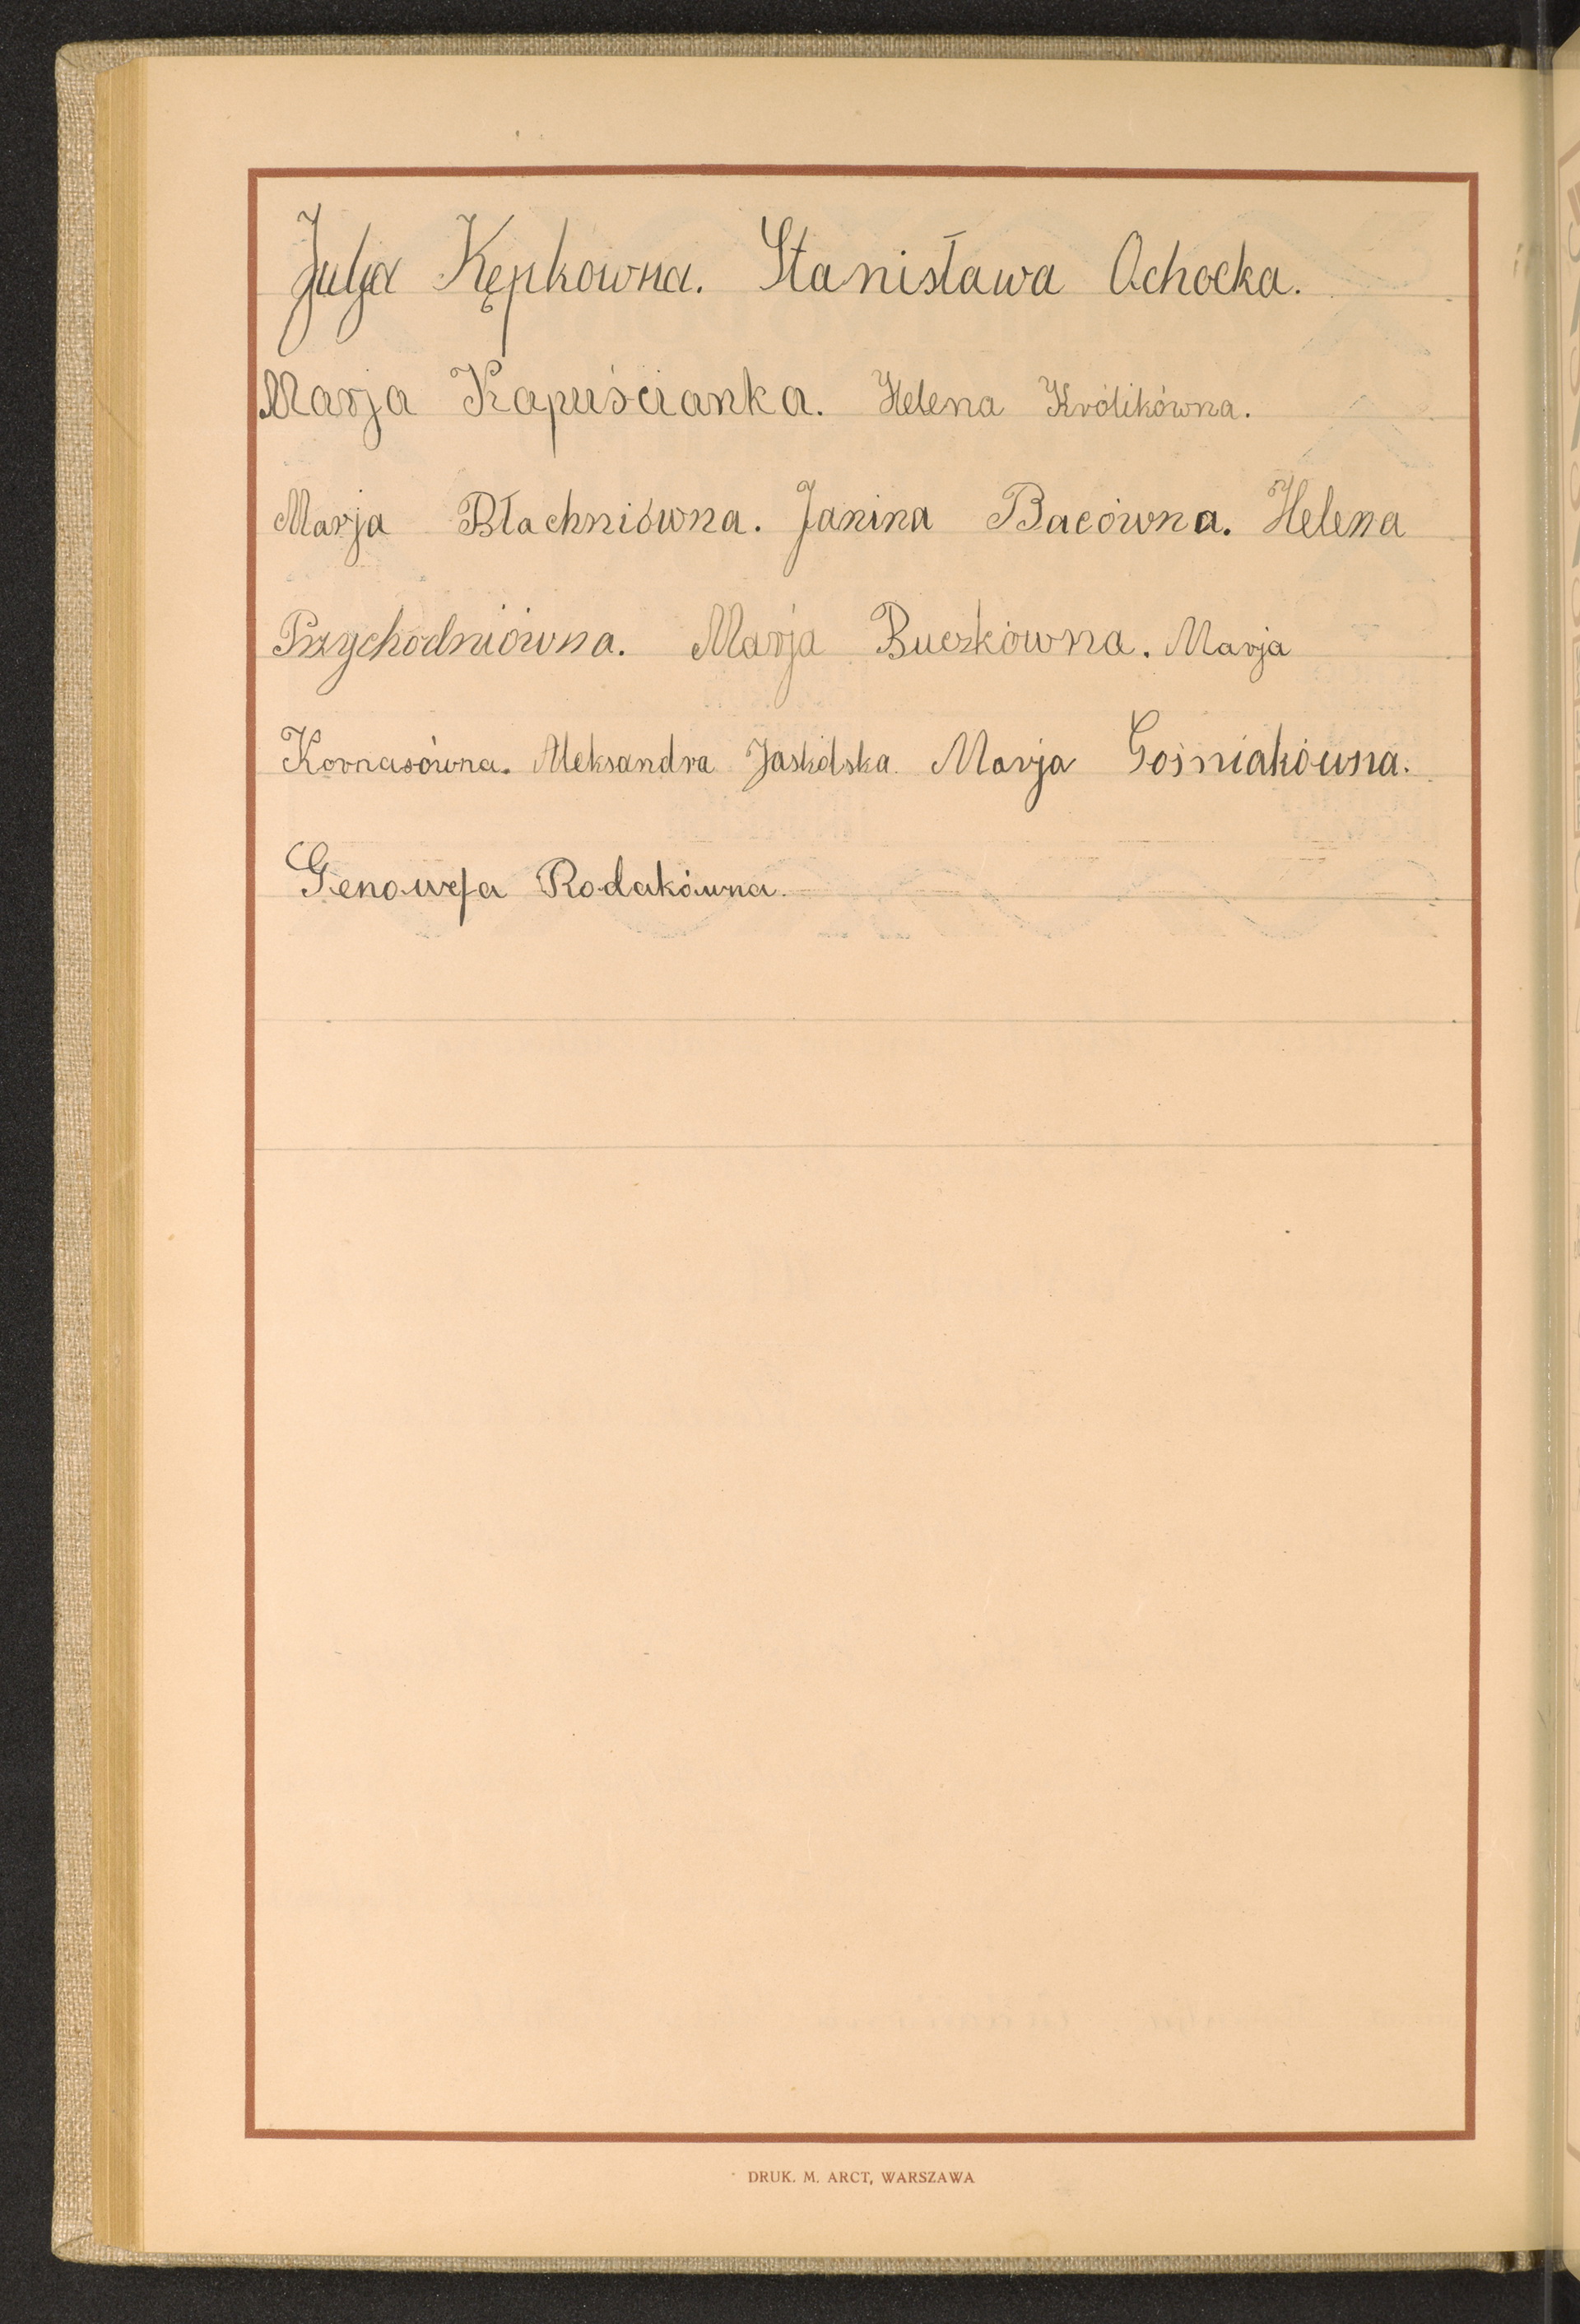 Julja Kępkowna. Stanisława Ochocka.
Marja Kapuścianka. Helena Królikówna.
Marja Błachniówna. Janina Bacówna. Helena
Przychodniówna. Marja Buczkówna. Marja
Kornasówna. Aleksandra Jaskólska. Marja Gośniakówna.
Genowefa Rodakówna.
DRUK. M. ARCT, WARSZAWA